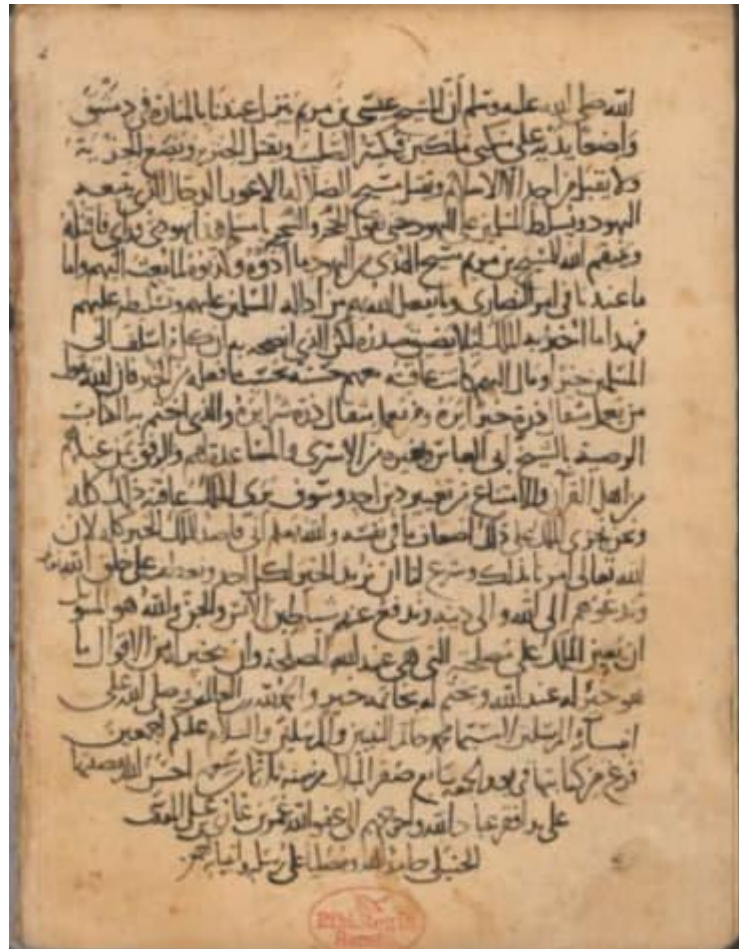 الله صلى الله عليه وسلم أن المسيح عيسى بن مريم ينزل عندنا بالمنارة في دمشق
واضعا يديه على منكبي ملكين فيكسر الصليب ويقتل الخنزير ويضع الجزية
ولا يقبل من أحد إلا الإسلام ويقتل مسيح الضلالة الأعور الدجال الذي يتبعه
اليهود ويسلط المسلمين على اليهود حتى يقول الحجر والشجر يا مسلم هذا يهودي ورائي فاقتله
وينتقم الله للمسيح بن مريم مسيح الهدى من اليهود ما آذوه وكذبوه لما بعث إليهم وأما
ما عندنا في أمر النصارى وما يفعل الله بهم من إدالة المسلمين عليهم وتسليطه عليهم
فهذا مما لا أخبر به الملك لئلا يضيق صدره لكن الذي أنصحه به أن كل من أسلف إلى
المسلمين خيرا ومال إليهم كانت عاقبته معهم حسنة بحسب ما فعله من الخير فان الله يقول
من يعمل مثقال ذرة خيرا يره ومن يعمل مثقال ذرة شرا يره والذي أختم به الكتاب
الوصية بالشيخ أبي العباس وبغيره من الأسرى والمساعدة لهم والرفق بمن عندهم
من أهل القرآن والامتناع من تغيير دين واحد وسوف يرى الملك عاقبة ذلك كله
ونحن نجزي الملك على ذلك أضعاف ما في نفسه والله يعلم أني قاصد للملك الخير كله لأن
الله تعالى أمرنا بذلك وشرع لنا أن نريد الخير لكل أحد ونعطف على خلق الله
وندعوهم إلى الله وإلى دينه وندفع عنهم شياطين الإنس والجن والله هو المسؤول
أن يعين الملك على مصلحته التي هي عند الله المصلحة وأن يخير له من الأقوال ما
هو خير له عند الله ويختم له بخاتمة خير والحمد لله رب العالمين وصلى الله على
أنبيائه المرسلين لا سيما محمد خاتم النبيين والمرسلين والسلام عليكم أجمعين
فرغ من كتابتها في يوم الجمعة سابع صفر المبارك من سنة
على يد أفقر عباد الله وأحوجهم إلى عفو الله عمر بن
الحنبلي حامدا لله ومصليا على رسله وأنبيائه